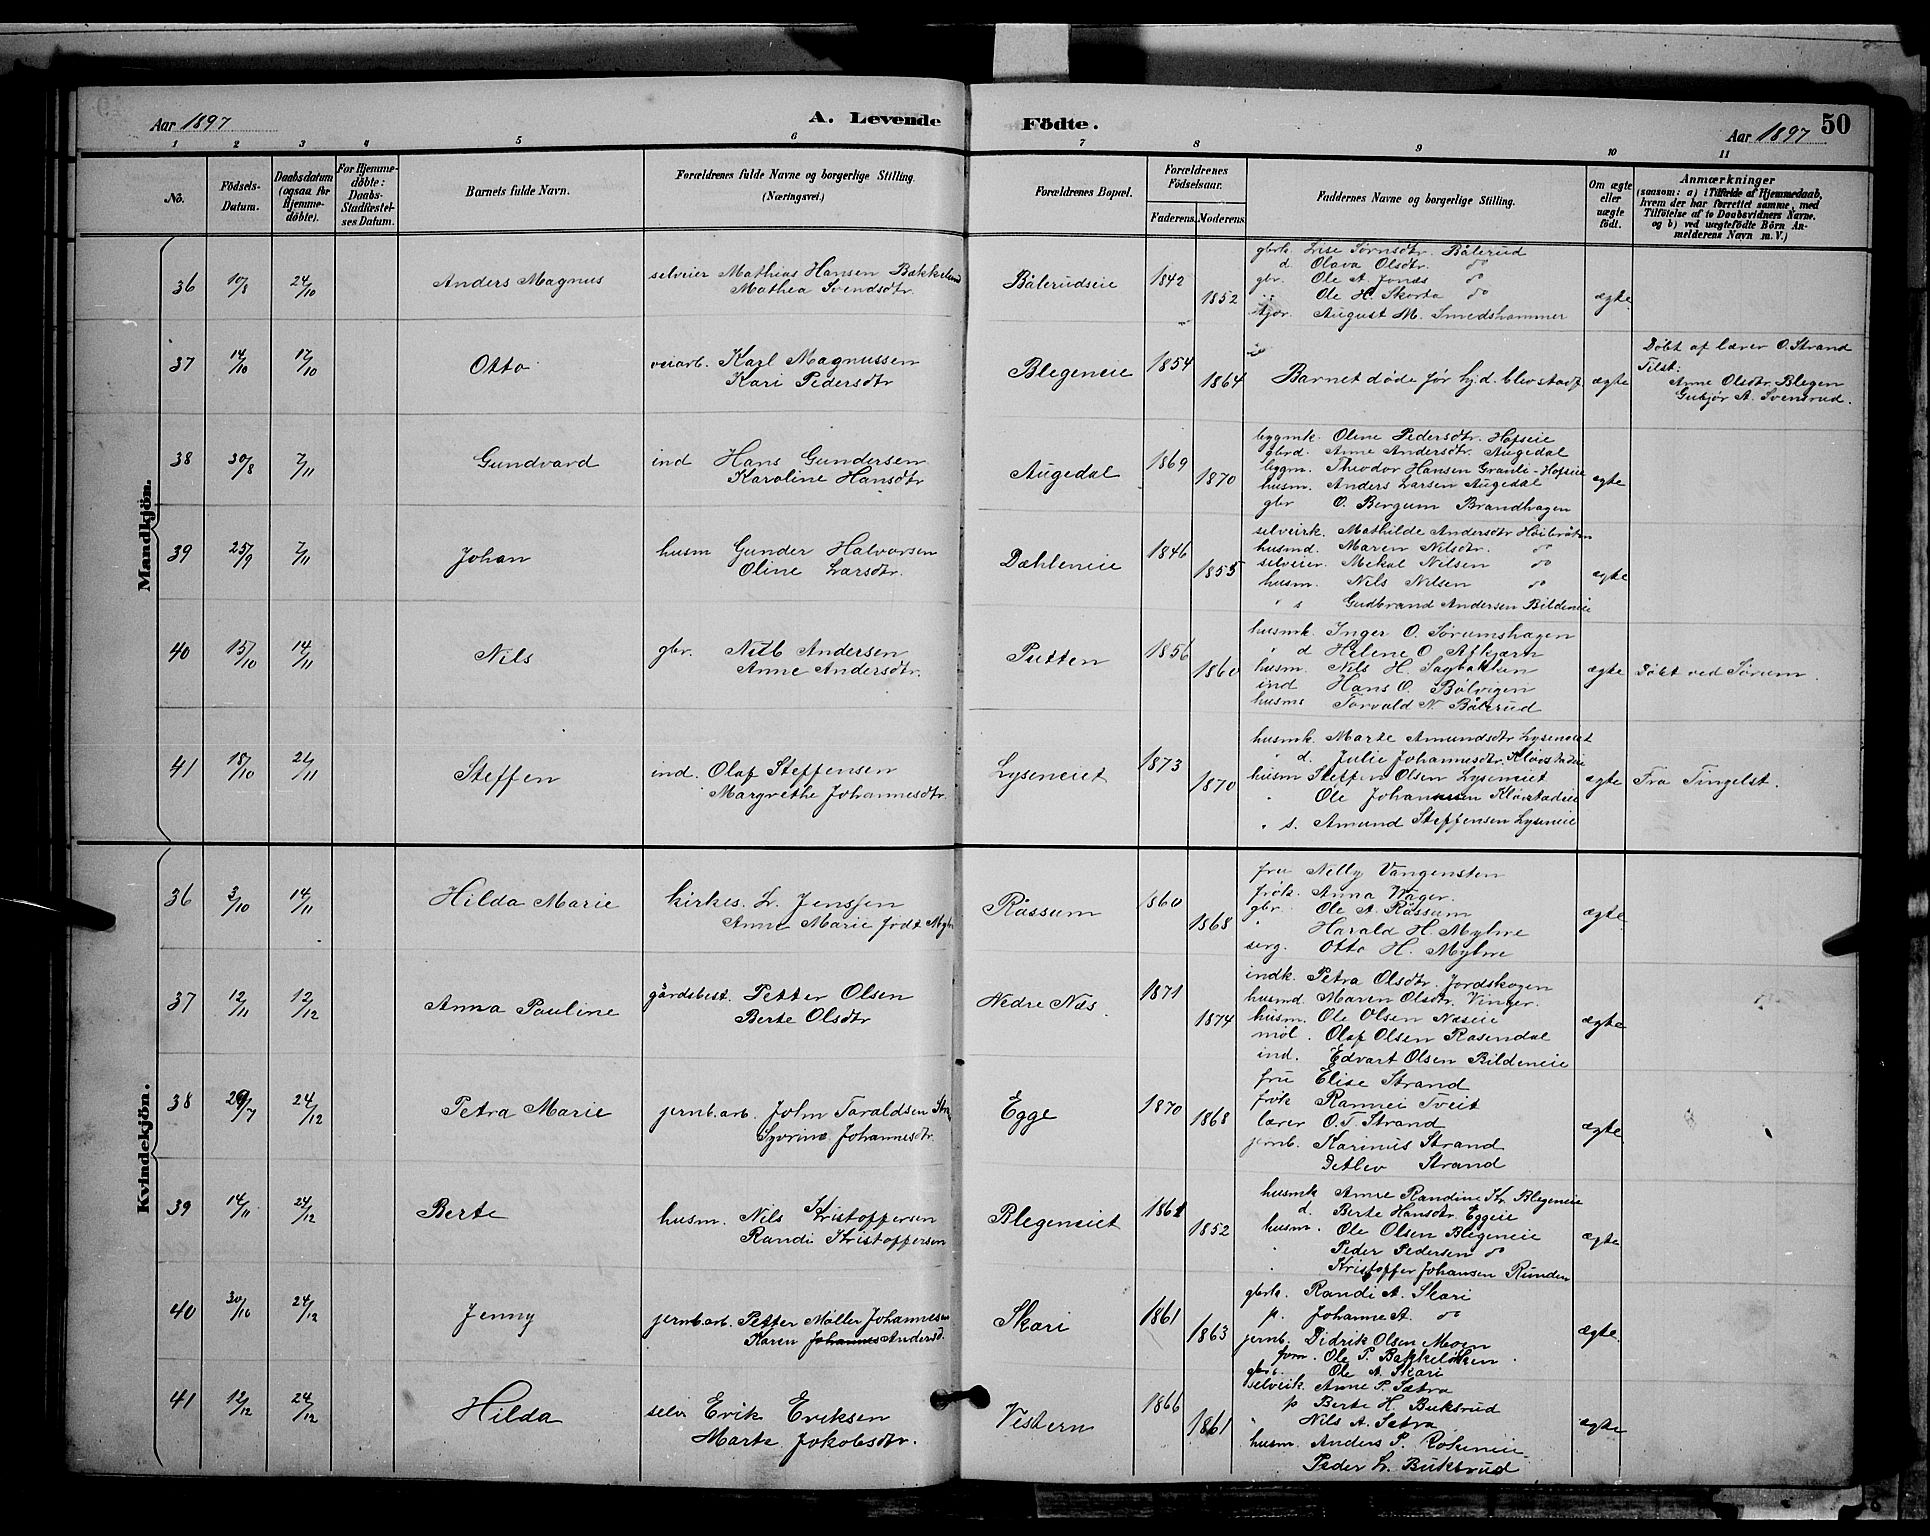 Aar 1897
A. Levende
Födte.
Aar 1897
50
1 2 3 4 5 6 7 8 9 10 11
No.
Födsels-
Datum.
Daabsdatum
(ogsaa för
Hjemme-
döbte).
For Hjemme-
döbte:
Daabs-
Stadfæstel-
ses Datum.
Barnets fulde Navn.
Forældrenes fulde Navne og borgerlige Stilling.
(Næringsvei.)
Forældrenes Bopæl.
Forældrenes
Födselsaar.
Faderens. Moderens.
Faddernes Navne og borgerlige Stilling.
Om ægte
eller
uægte
födt.
Anmærkninger
(saasom: a) i Tilfælde af Hjemmedaab,
hvem der har forrettet samme, med
Tilföielse af to Daabsvidners Navne.
og b) ved uægtefödte Börn An-
melderens Navn m. V.)
Mandkjön.
36 10/8 24/10 Anders Magnus
selveier Mathias Hansen Bakkelund
Mathea Svendsdtr.
Bålerudseie 1842 1852
gbrk. Lise Sørnsdtr. Bålerud
d. Olava Olsdtr. do
gbr. Ole A. Jonæs do
Ole H. Skorta do
August M. Smedshammer
ægte
37 14/10 17/10 Otto
veiarb. Karl Magnussen
Kari Pedersdtr
Blegeneie 1854 1864
Barnet døde før hj.d. blev stadf
ægte
Døbt af lærer O. Strand
Tilst:
Anne Olsdtr. Blegen
Gubjør A. Svensrud.
38 30/8 7/11 Gundvard
ind Hans Gundersen
Karoline Hansdtr
Augedal 1869 1870
bygmk. Oline Pedersdtr. Hofseie
gbrd. Anne Andersdtr. Augedal
bygm. Theodor Hansen Granli-Hofseie
husm. Anders Larsen Augedal
gbr O. Bergum Brandhagen
ægte
39 25/9 7/11 Johan
husm Gunder Halvorsen
Oline Larsdtr.
Dæhleneie 1846 1855
selveirk. Mathilde Andersdtr Høibråten
husmd. Maren Nilsdtr. do
selveier. Mekal Nilsen do
husm. Nils Nilsen do
" s Gudbrand Andersen Bildeneie
ægte
40 15/10 14/11 Nils
gbr. Nils Andersen
Anne Andersdtr.
Putten 1856 1860
husmk. Inger O. Sørumshagen
" d Helene O. Afkjærn
husm. Nils H. Sagbakken
ind Hans O. Bølvigen
husms Torvald N. Bålerud
ægte
Døbt ved Sørum.
41 18/10 21/11 Steffen
ind. Olaf Steffensen
Margrethe Johannesdtr.
Lyseneiet 1873 1870
husmk. Marte Amundsdtr Lyseneiet
" d. Julie Johannesdtr. Kløvstadeie
husm Steffen Olsen Lyseneiet
" Ole Johannesen Kløvstadeie
" s. Amund Steffensen Lyseneie
ægte
Fra Tingelst.
Kvindekjön.
36 3/10 14/11 Hilda Marie
kirkes. L. Jenssen
Anne Marie født
Råssum 1860 1868
fru Nelly Vangensten
frøk. Anna Unger.
gbr. Ole A. Råssum
" Harald H. Myhre
serg. Otto H. Myhre
ægte
37 12/11 12/12 Anna Pauline
gårdsbest. Petter Olsen
Berte Olsdtr
Nedre Næs. 1871 1874
indk. Petra Olsdtr. Jordskogen
husmd. Maren Olsdtr. Vinger.
husm. Ole Olsen Næseie
møl. Olaf Olsen Rosendal
ind. Edvart Olsen Bildeneie
ægte
38 29/7 24/12 Petra Marie
jernb.arb. John Taraldsen
Syverine Johannesdtr.
Egge 1870 1868
fru Elise Strand
frøk Rannei Tveit
lærer O.T. Strand
jernb. Karinius Strand
Detlev Strand
ægte
39 14/11 24/12 Berte
husm. Nils Kristoffersen
Randi Kristoffersen
Blegeneiet 1861 1852
husmk Anne Randine Kr. Blegeneie
d. Berte Hansdtr. Eggeie
husm. Ole Olsen Blegeneie
" Peder Pedersen do
" Kristoffer Johansen Runden
ægte
40 30/10 24/12 Jenny
jernb.arb. Petter Møller Johannesen
Karen Johannes Andersd.
Skari 1861 1863
gbrk. Randi A. Skari
p. Johanne A. do
jernb. Didrik Olsen Moen
form. Ole P. Bakkeløkken.
gbr. Ole A. Skari
ægte.
41 12/12 24/12 Hilda
selv Erik Eriksen
Marte Jakobsdtr.
Vestern 1866 1861
selveik. Anne P. Sætra
p Berte H. Buksrud
" Nils A. Sætra
husm. Anders P. Rokeneie
Peder L. Buksrud
ægte